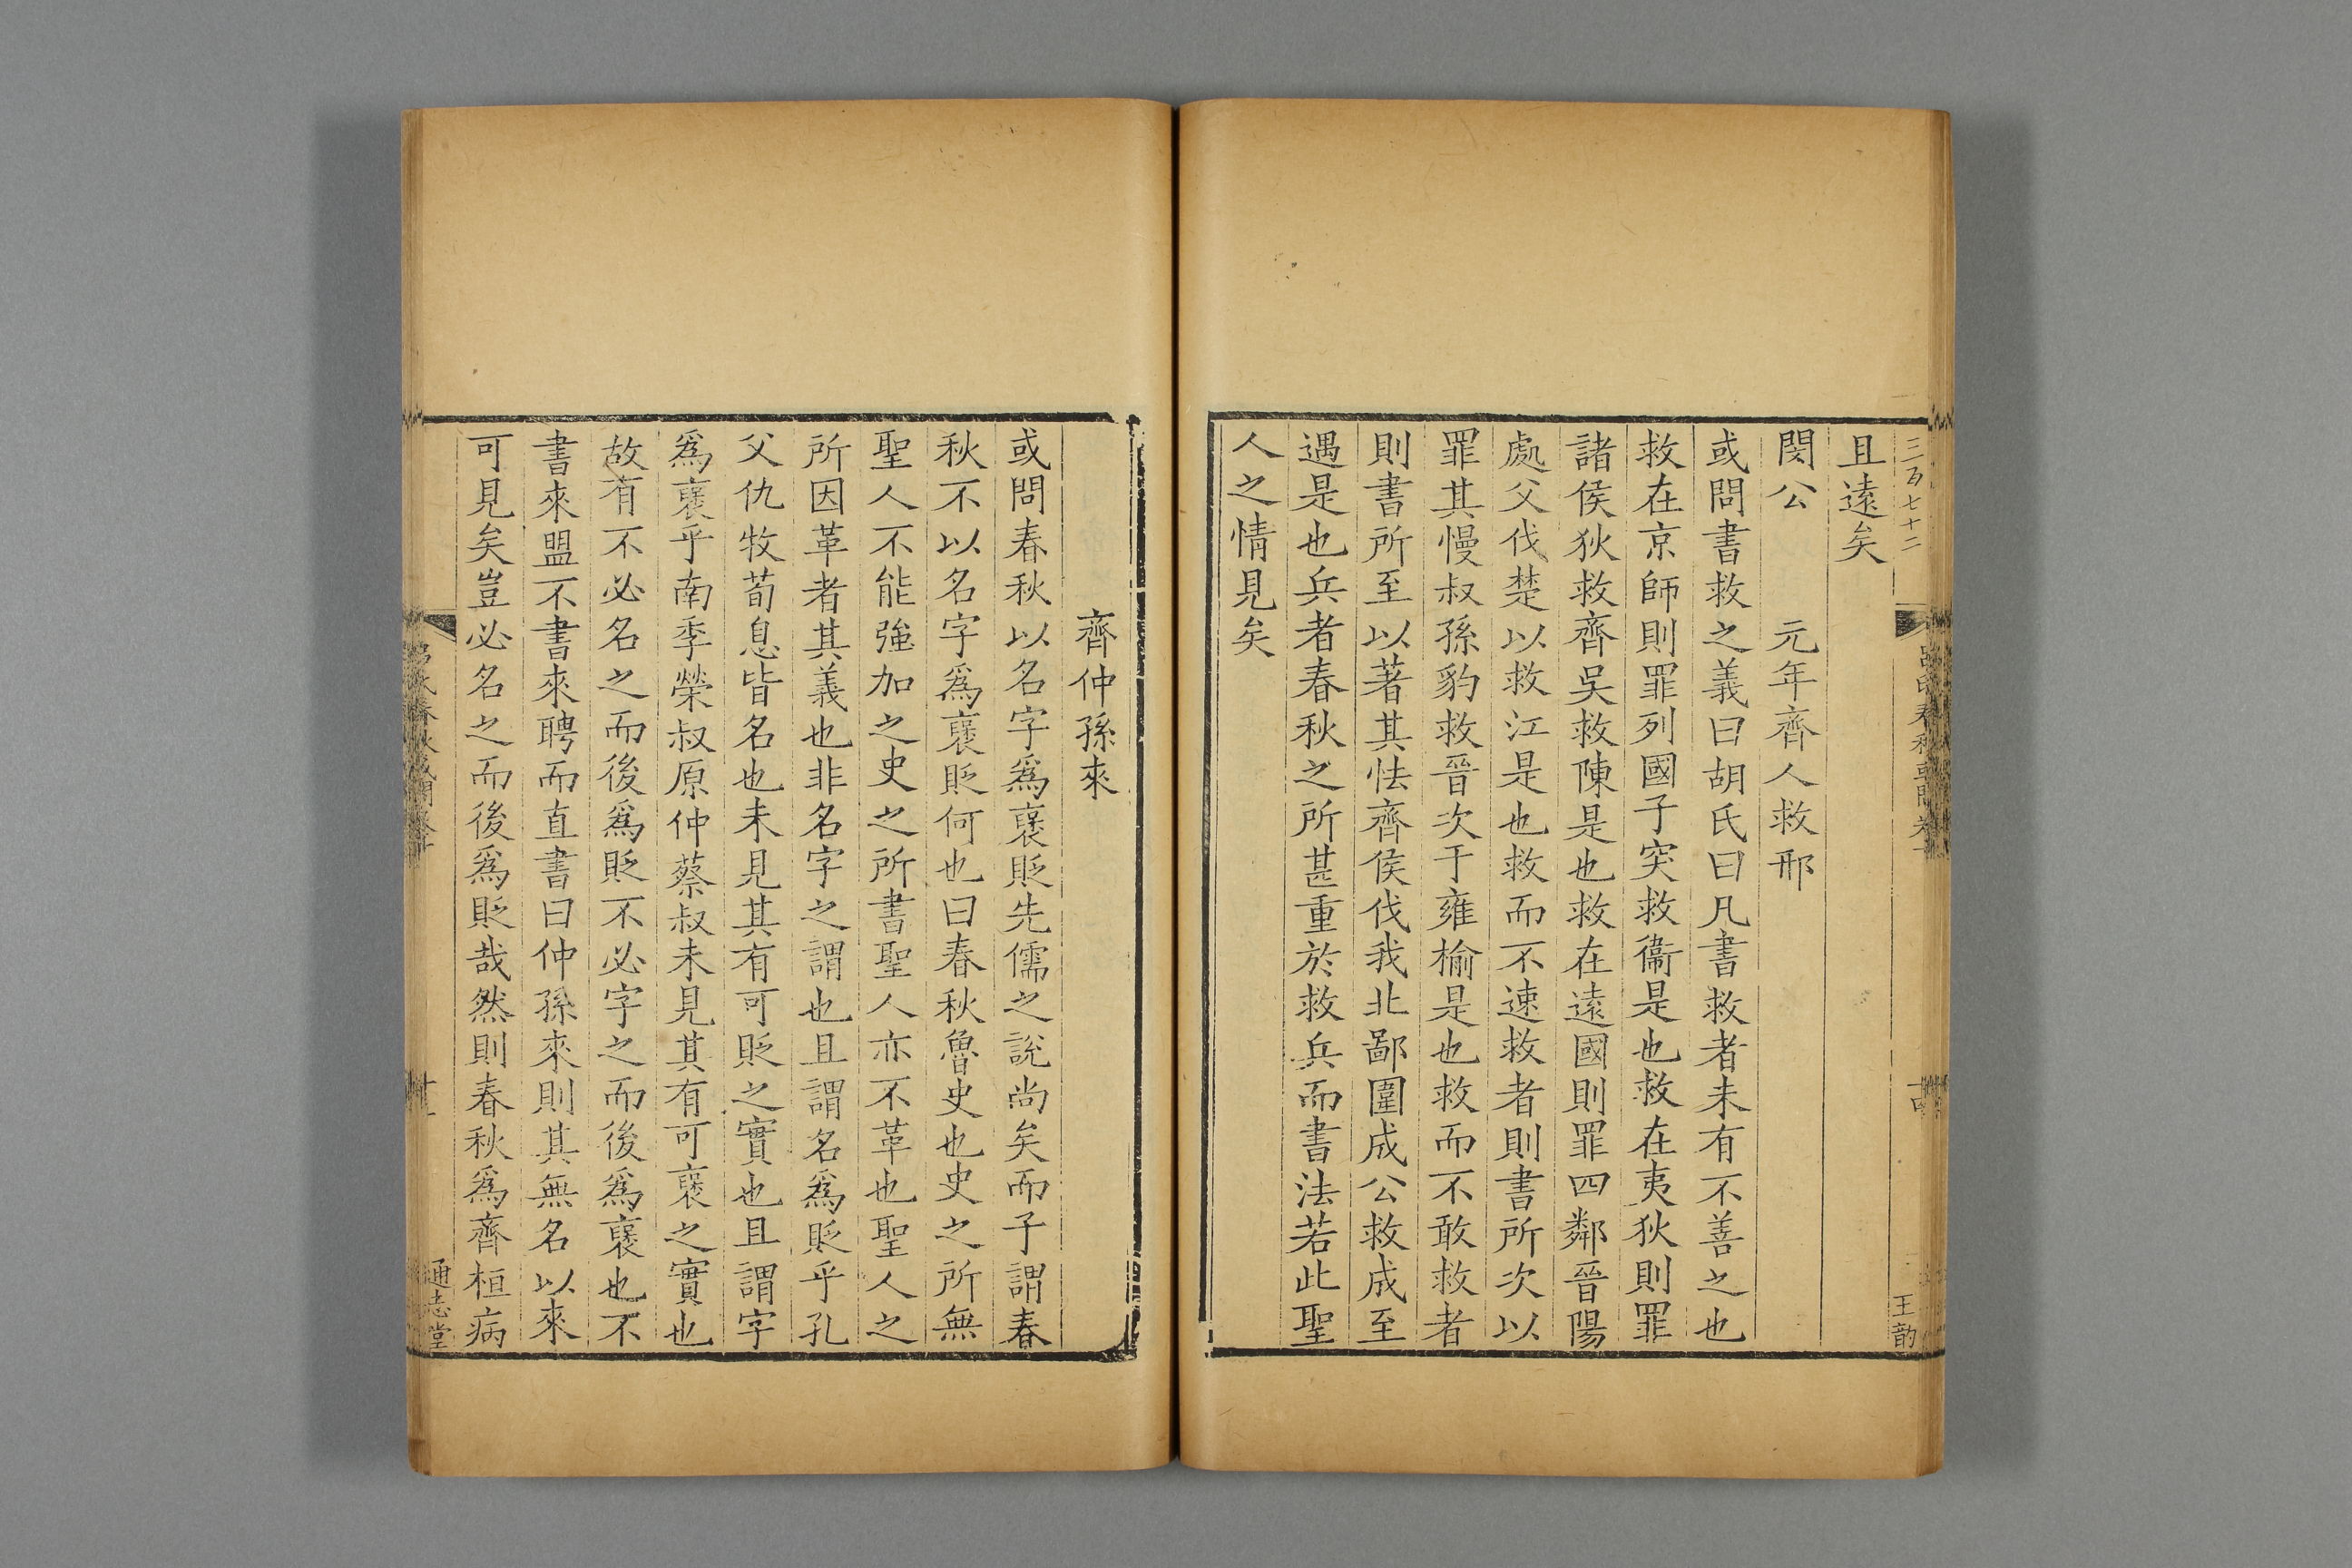 三百七十二
王韵
且遠矣
閔公　元年齊人救邢
或問書救之義曰胡氏曰凡書救者未有不善之也
救在京師則罪列國子突救衞是也救在夷狄則罪
諸侯狄救齊吳救陳是也救在遠國則罪四鄰晉陽
處父伐楚以救江是也救而不速救者則書所次以
罪其慢叔孫豹救晉次于雍榆是也救而不敢救者
則書所至以著其怯齊侯伐我北鄙圍成公救成至
遇是也兵者春秋之所甚重於救兵而書法若此聖
人之情見矣
齊仲孫來
或問春秋以名字爲襃貶先儒之說尚矣而子謂春
秋不以名字爲襃貶何也曰春秋魯史也史之所無
聖人不能強加之史之所書聖人亦不革也聖人之
所因革者其義也非名字之謂也且謂名爲貶乎孔
父仇牧荀息皆名也未見其有可貶之實也且謂字
爲襃乎南季榮叔原仲蔡叔未見其有可襃之實也
故有不必名之而後爲貶不必字之而後爲襃也不
書來盟不書來聘而直書曰仲孫來則其無名以來
可見矣豈必名之而後爲貶哉然則春秋爲齊桓病
通志堂